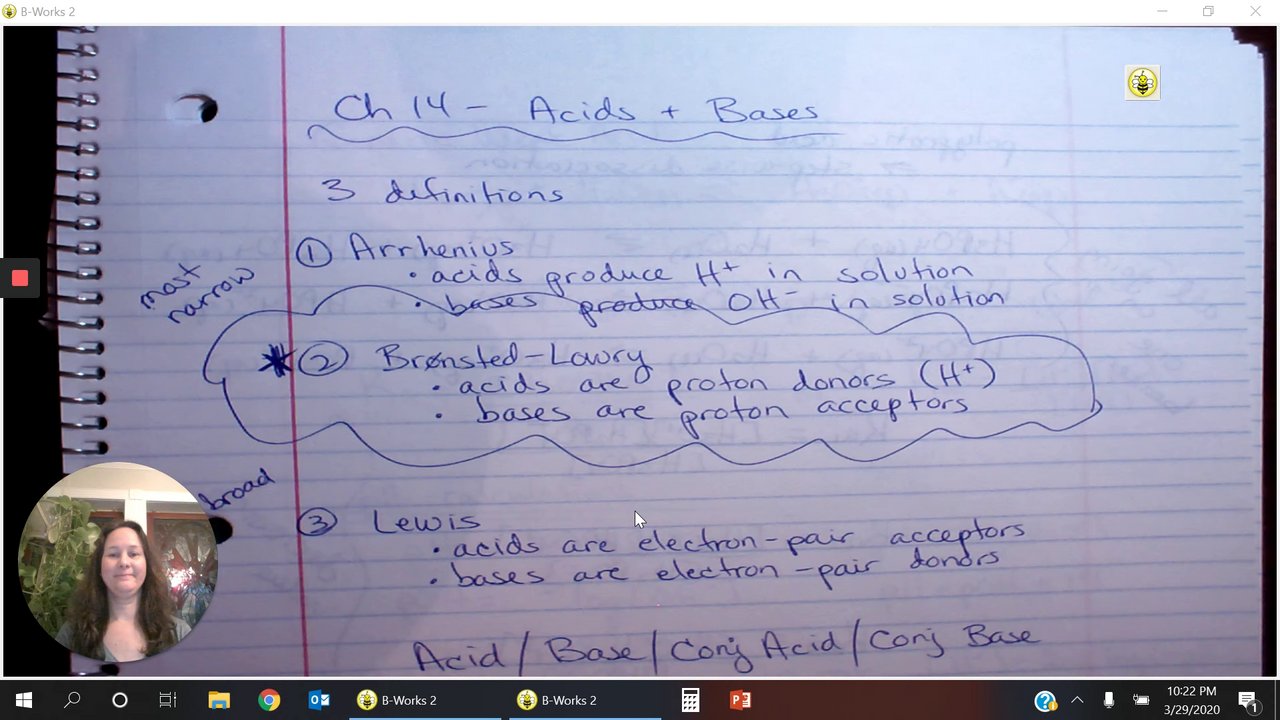 B-Works 2
Ch 14 - Acids + Bases
3 definitions
① Arrhenius
• acids produce H⁺ in solution
• bases produce OH⁻ in solution
most
narrow
* ② Brønsted-Lowry
• acids are proton donors (H⁺)
• bases are proton acceptors
broad
③ Lewis
• acids are electron-pair acceptors
• bases are electron-pair donors
Acid / Base / Conj Acid / Conj Base
B-Works 2
B-Works 2
10:22 PM
3/29/2020
1